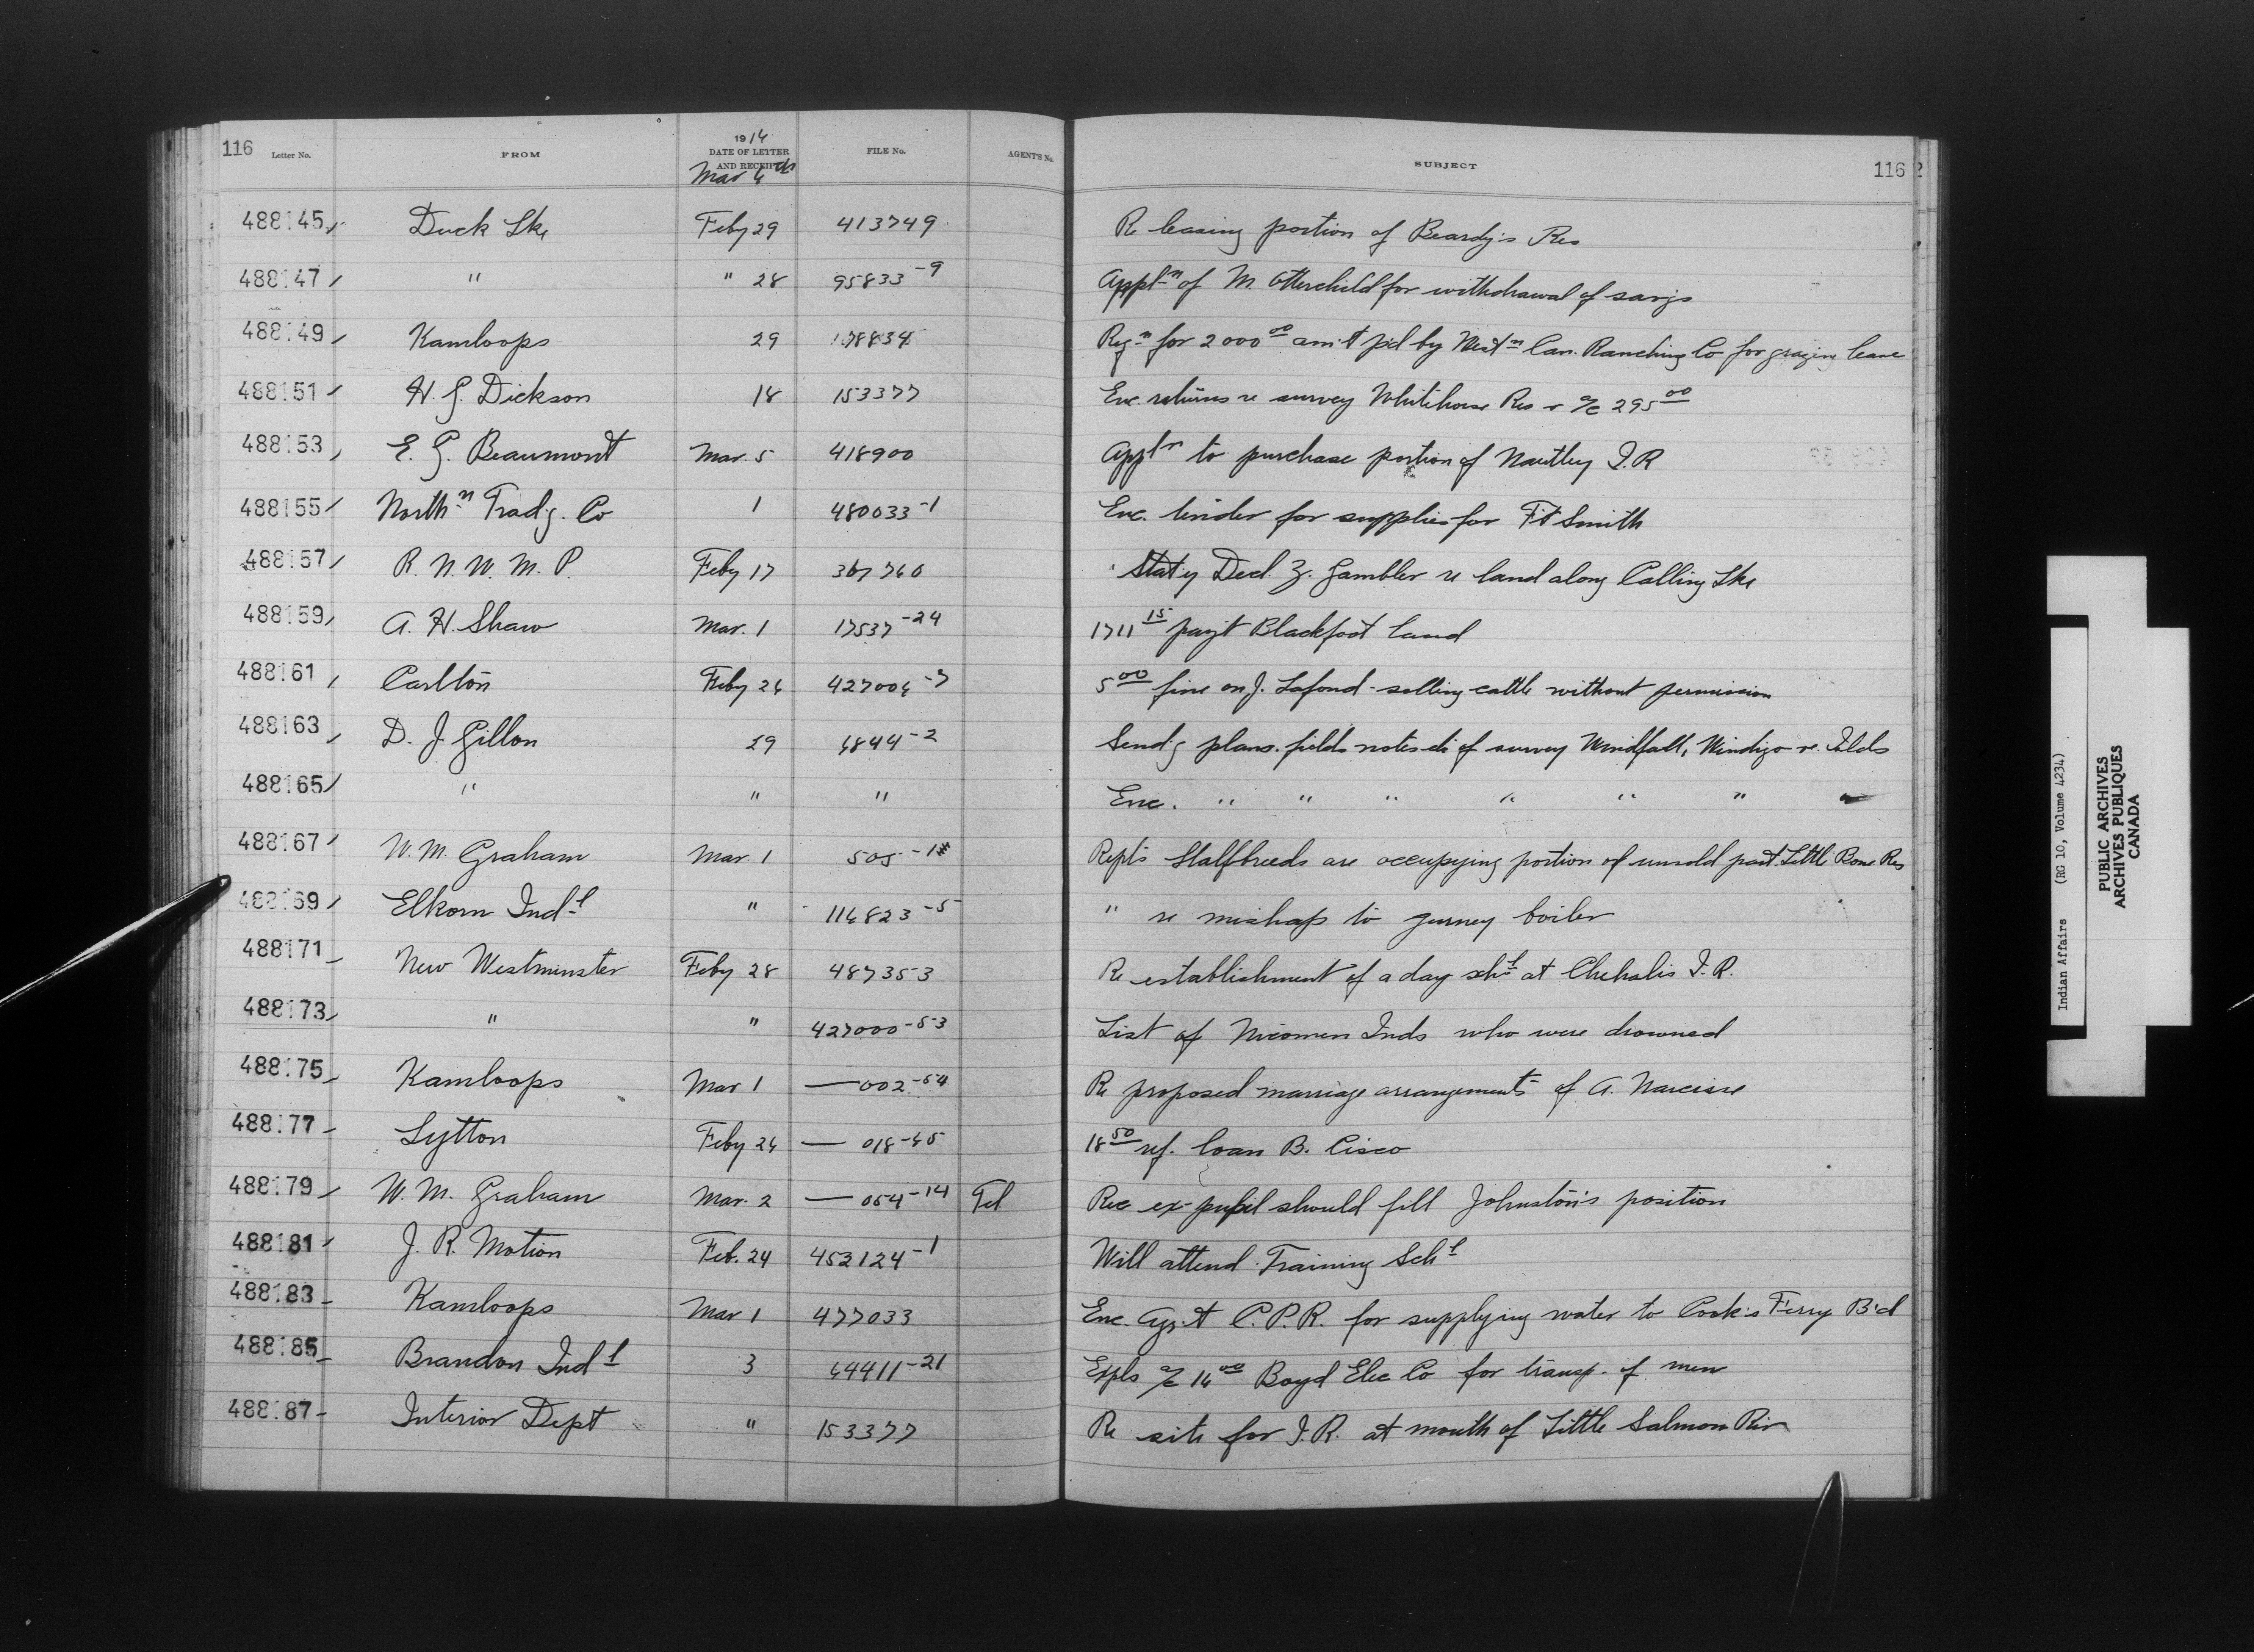 116 Letter No. FROM 1914 DATE OF LETTER AND RECEIPT FILE No. AGENT'S No. SUBJECT 116
Mar 6th
488145 Duck Lke Feby 29 413749 Re leasing portion of Beardy's Res
488147 " " 28 95833-9 Appln of M. Otterchild for withdrawal of savgs
488149 Kamloops 29 178834 Reqn for 2000 00 am't p'd by West'n Can. Ranching Co for grazing lease
488151 H. G. Dickson 18 153377 Enc. returns re survey Whitehorse Res & a/c 295 00
488153 E. G. Beaumont Mar. 5 418900 Appln to purchase portion of Nautley I.R
488155 Northn Trad'g. Co 1 480033-1 Enc. tender for supplies for Ft Smith
488157 R. N. W. M. P. Feby 17 367760 Stat'y Decl. Z. Gambler re land along Calling Lke
488159 A. H. Shaw Mar. 1 17537-24 1711 15 pay't Blackfoot land
488161 Carlton Feby 26 427006-7 5 00 fine on J. Lafond - selling cattle without permission
488163 D. J. Gillon 29 6844-2 Send'g plans. fields notes etc of survey Windfall, Windigo re. Islds
488165 " " " Enc. " " " " " "
488167 W. M. Graham Mar. 1 505-1 Rept's Halfbreeds are occupying portion of unsold part Little Bone Res
488169 Elkorn Indl " 116823-5 " re mishap to gurney boiler
488171 New Westminster Feby 28 487353 Re establishment of a day schl at Chehalis I.R.
488173 " " 427000-53 List of Nicomen Inds who were drowned
488175 Kamloops Mar 1 — 002-54 Re proposed marriage arrangements of A. Narcisse
488177 Lytton Feby 26 — 018-45 18 50 ref. loan B. Cisco
488179 W. M. Graham Mar. 2 — 054-14 Tel Rec ex-pupil should fill Johnston's position
488181 J. R. Motion Feb. 24 453124-1 Will attend Training Schl
488183 Kamloops Mar 1 477033 Enc. Agr't C.P.R. for supplying water to Cook's Ferry B'd
488185 Brandon Indl 3 64411-21 Expls a/c 16 00 Boyd Elec Co for transp. of men
488187 Interior Dept " 153377 Re site for I.R. at mouth of Little Salmon Riv
Indian Affairs (RG 10, Volume 4234)
PUBLIC ARCHIVES
ARCHIVES PUBLIQUES
CANADA